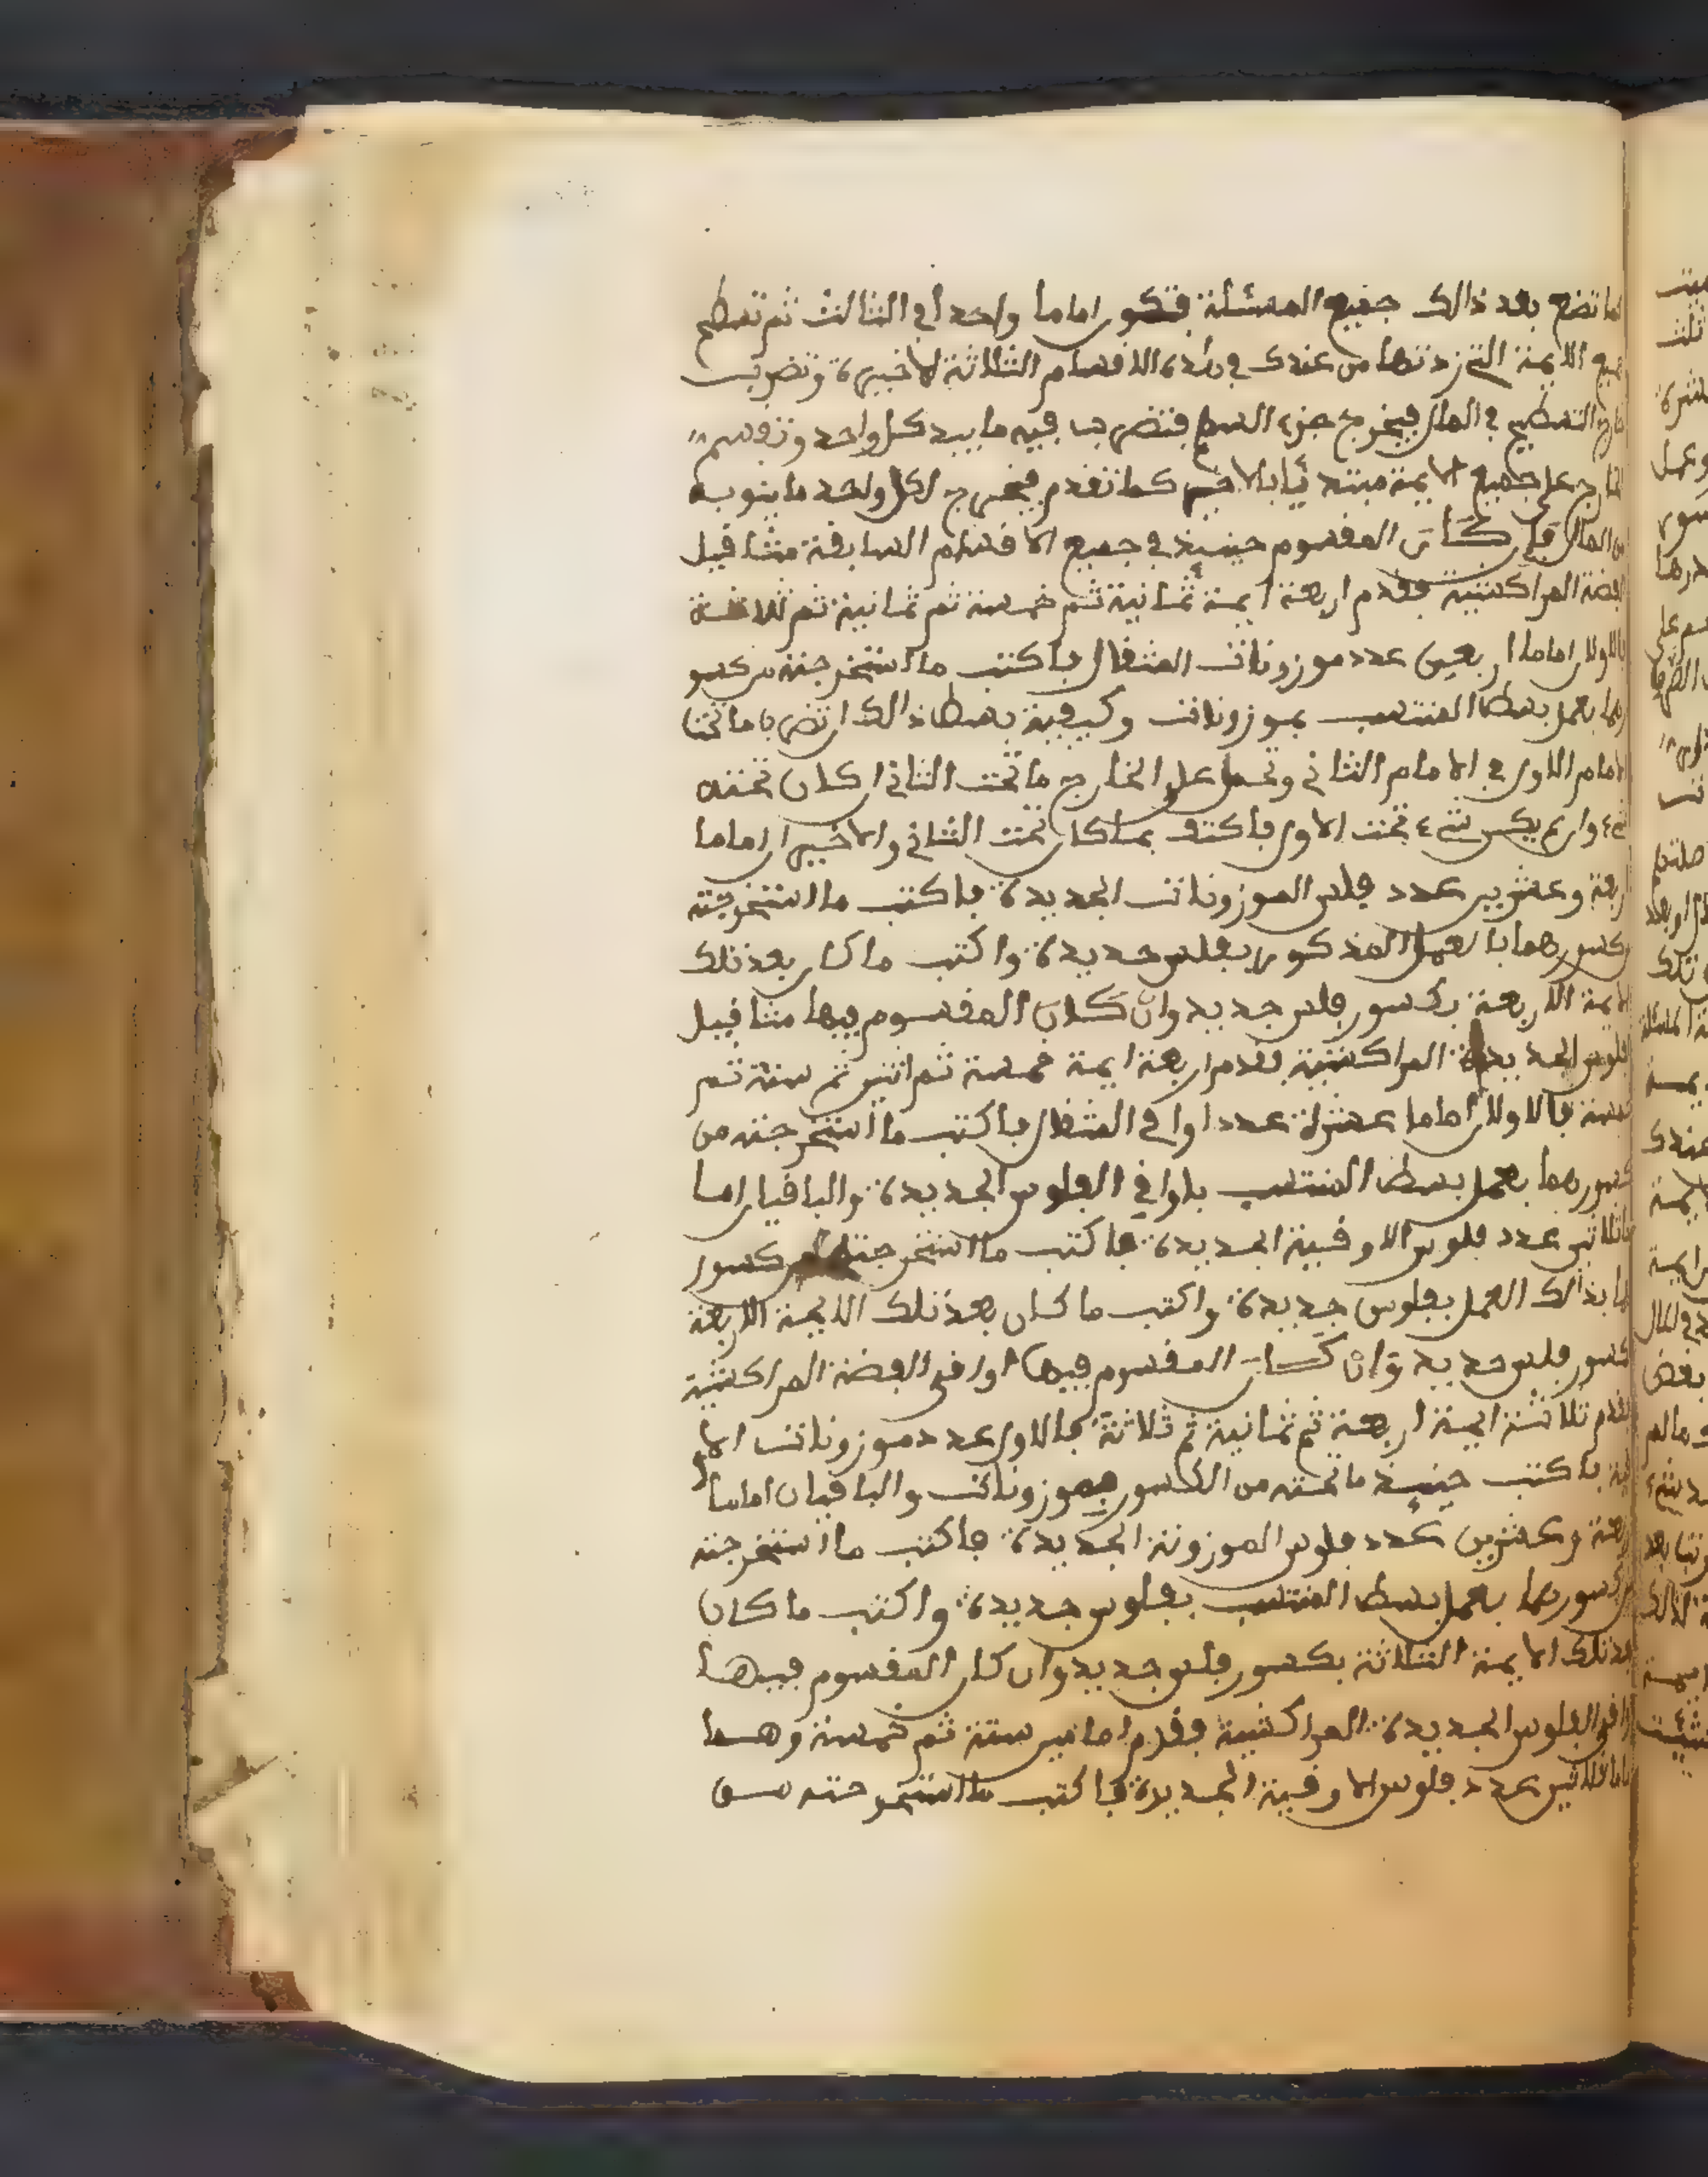 كما تضع بعد ذالك جميع المسئلة فتكون اماما واحدا في الثالث ثم تسطح
جميع الايمة التي زدتها من عندك في هذه الاقسام الثلاثة الاخيرة وتضرب
خارج التسطيح في المال فيخرج جزء السهم فتضرب فيه ما بيد كل واحد وتقسم
الخارج على جميع الايمة مبتدئا بالاخير كما تقدم فيخرج لكل واحد ما ينوبه
من المال فإن كان المقسوم حينئذ في جميع الاقسام السابقة مثاقيل
الفضة المراكشية فقدم اربعة ايمة ثمانية ثم خمسة ثم ثمانية ثم ثلاثة
فالاولان اماما اربعين عدد موزونات المثقال فاكتب ما استخرجته من كسو
رهما بعمل بسط المنتسب بموزونات وكيفية بسط ذالك ان تضرب ما تحت
الامام الاول في الامام الثاني وتحمل على الخارج ما تحت الثاني ان كان تحته
شيء وان لم يكن شيء تحت الاول فاكتف بما كان تحت الثاني والاخيران اماما
اربعة وعشرين عدد فلوس الموزونات الجديدة فاكتب ما استخرجته
من كسورهما بالعمل المذكور بفلوس جديدة واكتب ما كان بعد تلك
الايمة الاربعة بكسور فلس جديد وان كان المقسوم فيها مثاقيل
الفلوس الجديدة المراكشية فقدم اربعة ايمة خمسة ثم اثنين ثم ستة ثم
خمسة فالاولان اماما عشرة عدد اواقي المثقال فاكتب ما استخرجته من
كسورهما بعمل بسط المنتسب باواقي الفلوس الجديدة والباقيان اما
ما ثلاثين عدد فلوس الاوقية الجديدة فاكتب ما استخرجته من كسور
هما بذالك العمل بفلوس جديدة واكتب ما كان بعد تلك الايمة الاربعة
بكسور فلس جديد وان كان المقسوم فيها اواقي الفضة المراكشية
فقدم ثلاثة ايمة اربعة ثم ثمانية ثم ثلاثة فالاول عدد موزونات الاو
قية فاكتب حينئذ ما تحته من الكسور بموزونات والباقيان اماما
اربعة وعشرين عدد فلوس الموزونة الجديدة فاكتب ما استخرجته
من كسورهما بعمل بسط المنتسب بفلوس جديدة واكتب ما كان
بعد تلك الايمة الثلاثة بكسور فلس جديد وان كان المقسوم فيها
اواقي الفلوس الجديدة المراكشية فقدم امامين ستة ثم خمسة وهما
اماما ثلاثين عدد فلوس الاوقية الجديدة فاكتب ما استخرجته من